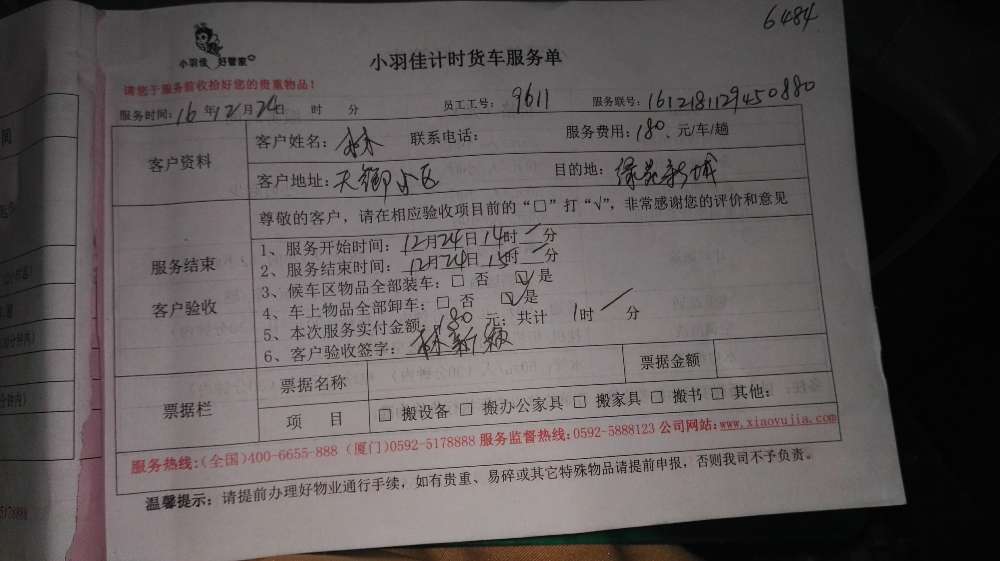 6484
小羽佳 好管家
小羽佳计时货车服务单
请您于服务前收拾好您的贵重物品！
服务时间：16年12月24日 时 分 员工工号：9611 服务联号：1612181129450880
客户资料
客户姓名：林 联系电话： 服务费用：180 元/车/趟
客户地址：天御小区 目的地：绿苑新城
尊敬的客户，请在相应验收项目前的“□”打“√”，非常感谢您的评价和意见
服务结束
客户验收
1、服务开始时间：12月24日14时 一 分
2、服务结束时间：12月24日15时 一 分
3、候车区物品全部装车：□ 否 ☑ 是
4、车上物品全部卸车：□ 否 ☑ 是
5、本次服务实付金额：180 元；共计 1时 一 分
6、客户验收签字：林新颖
票据栏
票据名称 票据金额
项 目 □ 搬设备 □ 搬办公家具 □ 搬家具 □ 搬书 □ 其他：
服务热线：(全国)400-6655-888 (厦门)0592-5178888 服务监督热线：0592-5888123 公司网站：www.xiaoyujia.com
温馨提示：请提前办理好物业通行手续，如有贵重、易碎或其它特殊物品请提前申报，否则我司不予负责。
5178888